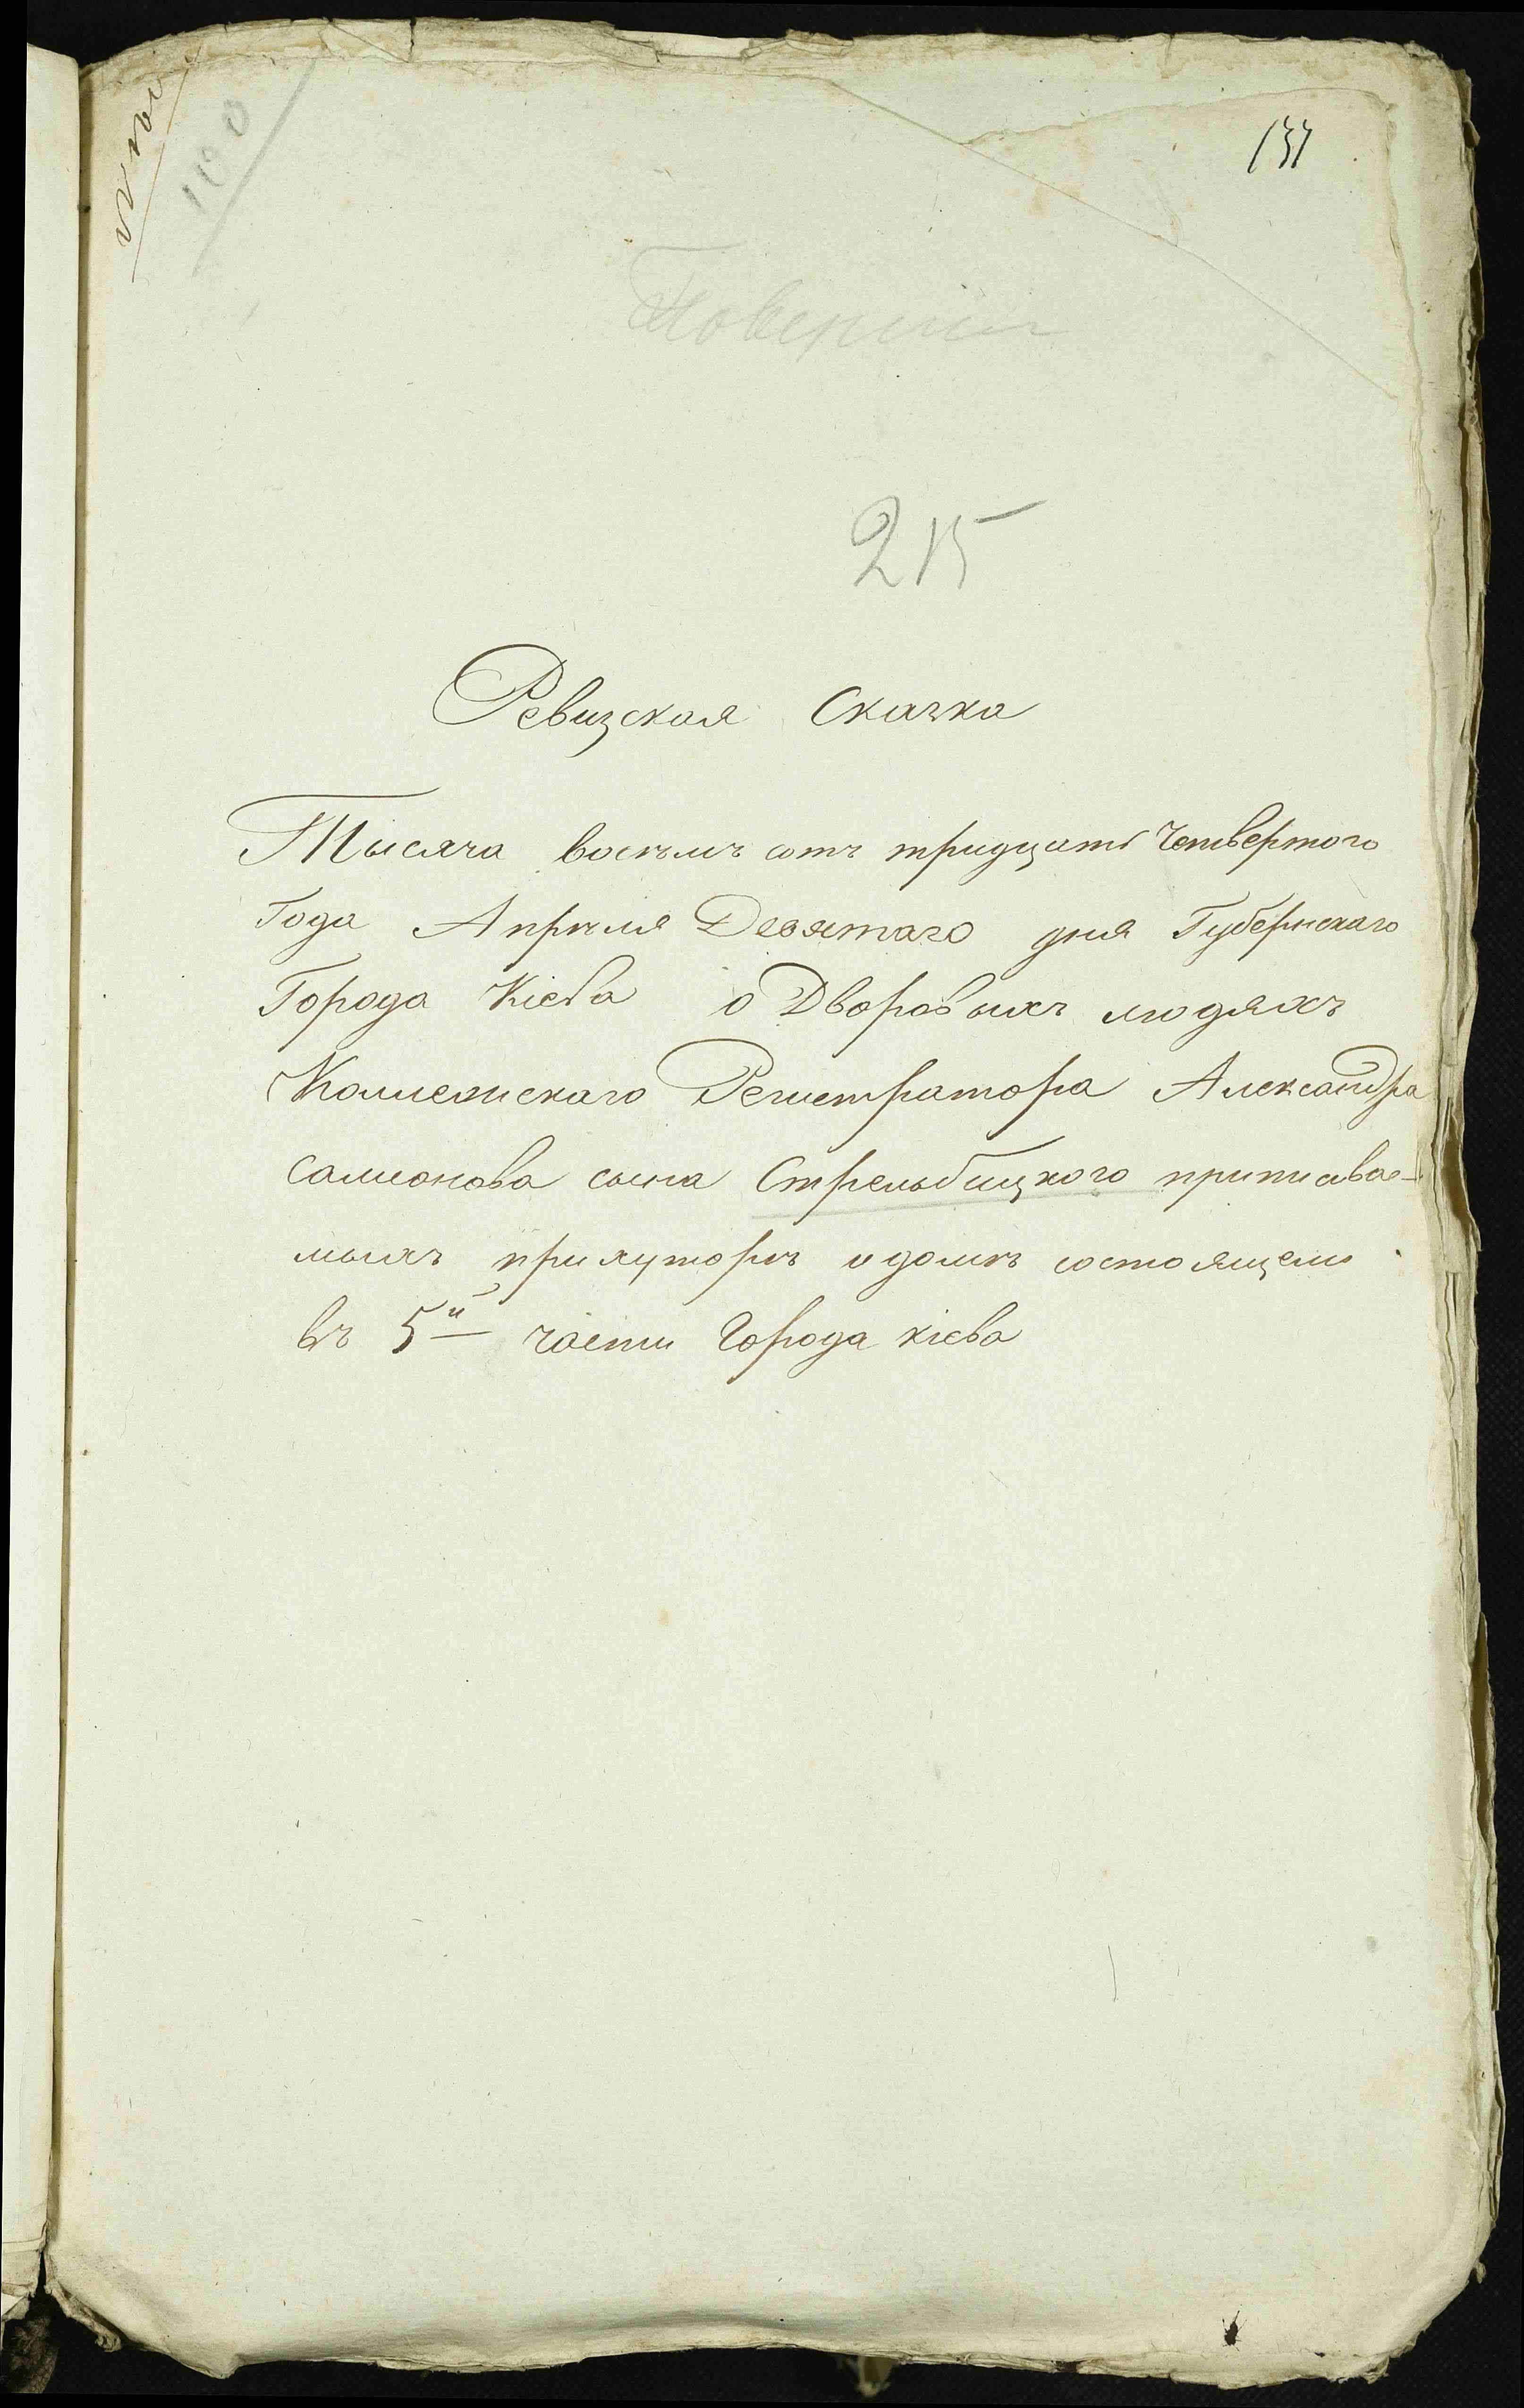 137
215
Ревизская Сказка
Тысяча восѣмъ сотъ тридцать Четвертого
Года Апрѣля Девятаго дня Губернскаго
Города Кіева о Дворовыхъ людяхъ
Коллежскаго Регистратора Александра
Самионова сына Стрельбицкого приписвае-
мыхъ при хуторѣ и домѣ состоящем
въ 5й части Города кіева